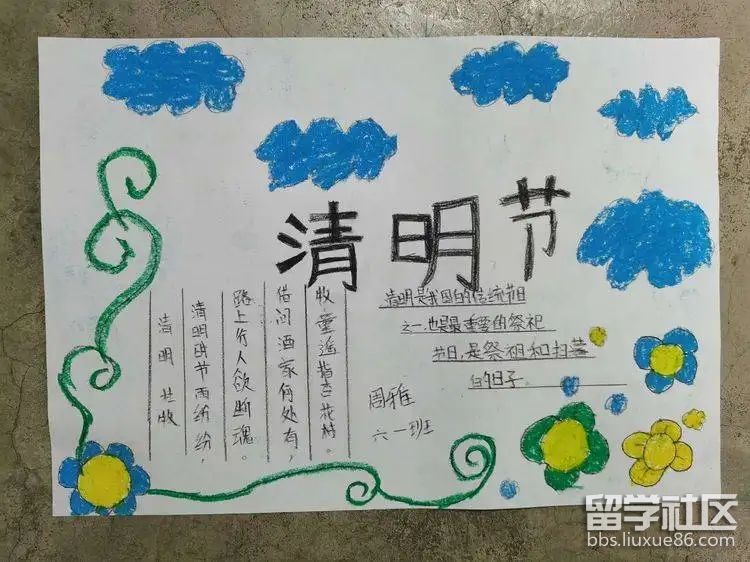 清明节
清明 杜牧
清明时节雨纷纷，
路上行人欲断魂。
借问酒家何处有，
牧童遥指杏花村。
清明是我国的传统节日
之一.也是最重要的祭祀
节日,是祭祖和扫墓
的日子.
周雅
六一班
留学社区
bbs.liuxue86.com